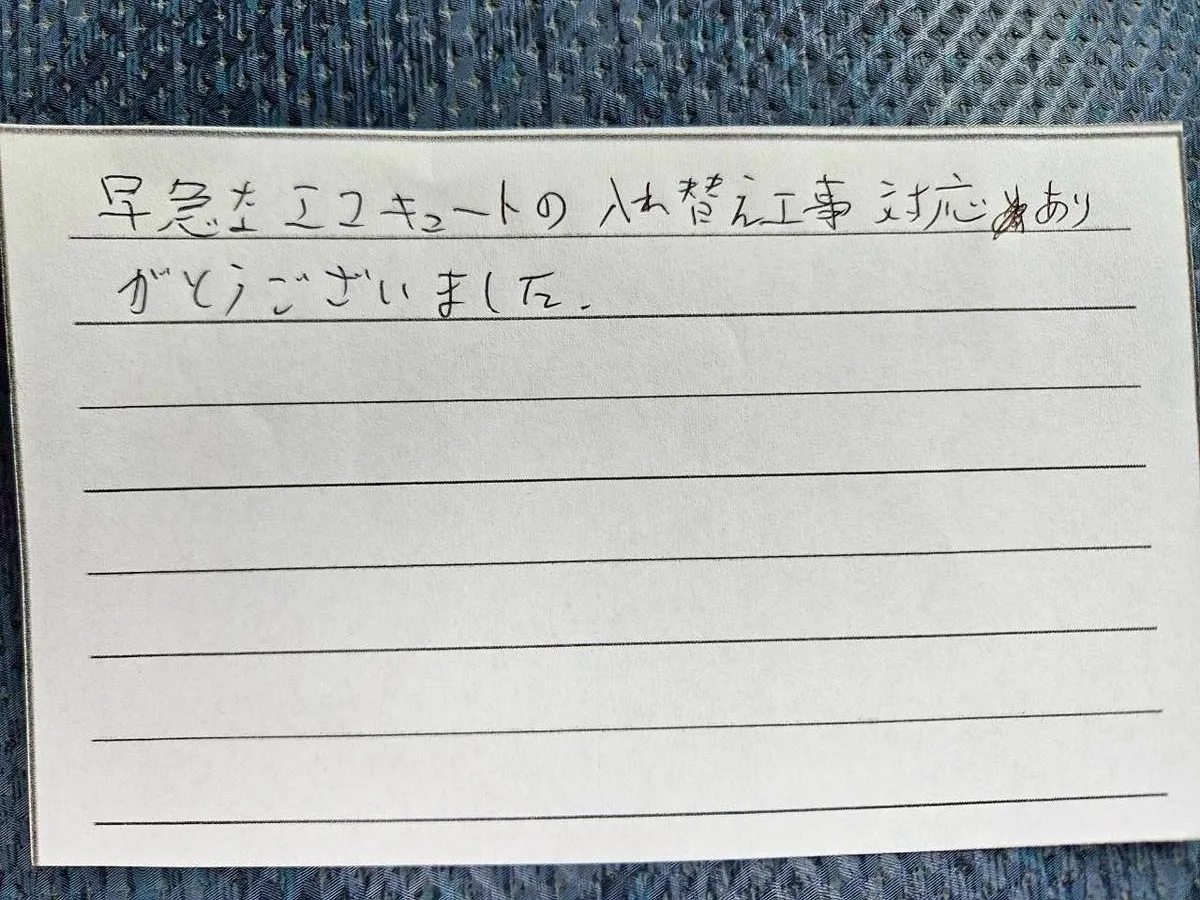 早急なエコキュートの入れ替え工事対応あり
がとうございました.